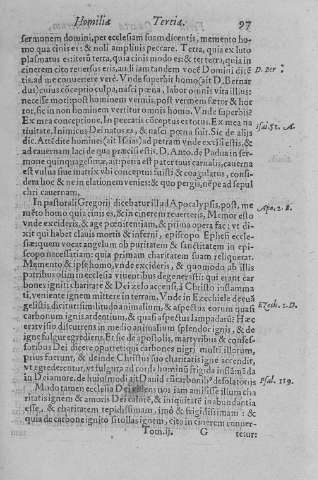 Homilia Tertia. 97
sermonem domini, per ecclesiam suam dicentis, memento ho-
mo qua cinis es: & noli amplius peccare. Terra, quia ex luto
plasmatus es: iterũ terra, quia cinis modo es: & ter terra, quia in
cinerem cito reversurus eris, audi iam tandem vocẽ Domini dicẽ
tis, ad me convertere varè. Unde superbis homo (ait D. Bernar-
D. Ber
dus) cuius cõceptio culpa, nasci pœna, labor omnis vita illius:
necesse mori: post hominem vermis, post vermem fœtor & hor
tor, sic in non hominem vertitur omnis homo. Unde superbis?
Ex mera conceptione. In peccatis cõceptus es totus. Ex mea na
tivitate. Inimicus Dei natura es, & nasci pœna fuit. Sic de aliis
Isal. 51. A.
dic. Attẽde homines (ait Isaias) ad petram unde excisi estis, &
ad cavernam laci de qua præcisi estis. D. Anto. de Padua in ser-
mone quinquagesimæ, ait: petra est pater tuus carnalis, caverna
est vulva sive matrix ubi conceptus fuisti & coagulatus, consi-
dera hoc & ne in elationem venies: & quo pergis, nẽpe ad sepul
chri cavernam.
In pastorali Gregorij dicebatur illud Apocalypsis, post, me
mẽto homo quia cinis es, & in cinerem reverteris, Memor esto
Apo. 2. B.
unde excideris, & age pœnitentiam, & prima opera fac: ut di-
xit qui habet clavis mortis & inferni, episcopo Ephesi eccle-
siæ: quem vocat angelum ob puritatem & sanctitatem in epi-
scopo necessariam: quia primam charitatem suam reliquerat.
Memento & ipse homo, unde excideris, & quomodo ab illis
patribus olim in ecclesia viventibus degenerasti: qui erant car
bones igniti charitate & Dei zelo accensi, à Christo inflamma
ti, veniente ignem mittere in terram. Unde in Ezechiele de evã
Ezech. 1. D.
gelistis dicitur: similitudo animalium, & aspectus eorum quasi
carbonum ignis ardentium, & quasi aspectus lampadarũ: Hæc
erat visio discurrens in medio animalium splendor ignis, & de
igne fulgur egrediens. Et sic de apostolis, martyribus & confes-
soribus Dei dicere oportet: qui carbones nigri multi illorum,
prius fuerunt, & deinde Christus suo charitatis igne accendit,
ut egrederentur, ut fulgura ad corda hominũ frigida inflamãda
in Dei amore, de huiusmodi ait David: cũ carbonib' desolatoriis
Psal. 119.
Modo tamen ecclesia Dei non iam amisisse illum cha
ritatis ignem & amoris Dei calorẽ, & iniquitatẽ in abundantia
esse, & charitatem tepidissimam, imò & frigidissimam: &
quia de carbone ignito si tollas ignem, cito in cinerem conver-
Tom. ij. G tetur: